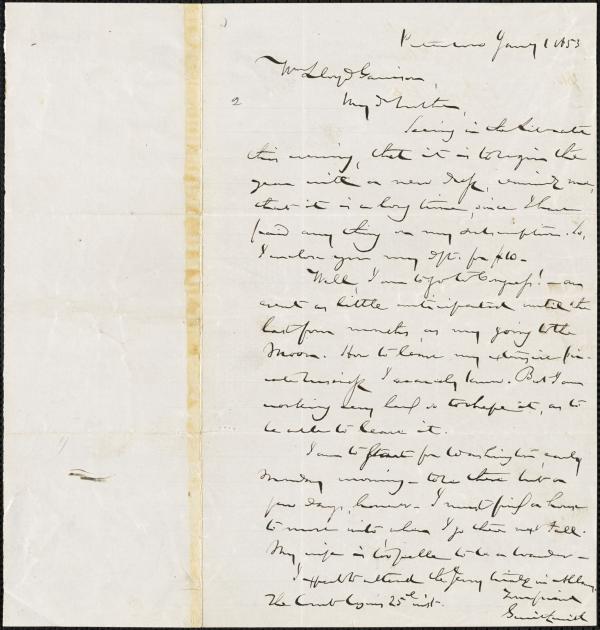 Peterboro Jany 1 1853
Wm Lloyd Garrison,
My d brother,
2
Seeing in the Liberator
this evening, that it is to begin the
year with a new dress, reminds me,
that it is a long time, since I have
paid any thing on my subscription. So,
I enclose you my dft. for $10 -
Well, I am to go to Congress! - an
event as little anticipated until the
last four months, as my going to the
Moon. How to leave my extensive pri-
vate business I scarcely know. But I am
working very hard so to shape it, as to
be able to leave it.
I am to start for Washington early
Monday morning - to be there but a
few days, however - I must find a house
to move into when I go there next Fall.
My wife is to be
I expect to attend the Jerry trials in Albany
The Court opens 25th inst.
Your friend
Gerrit Smith